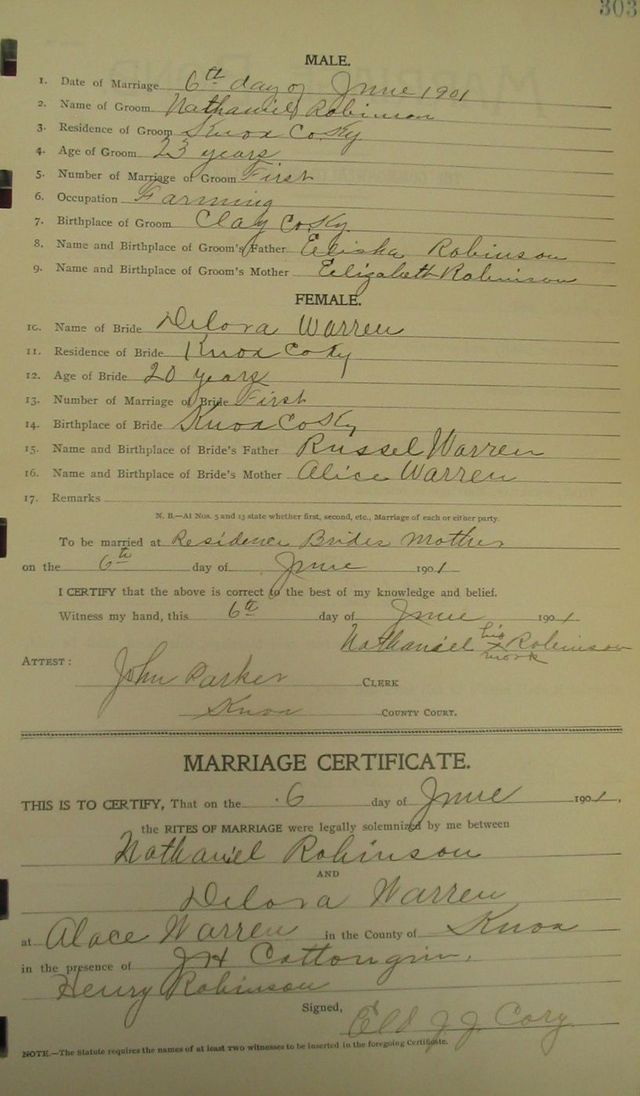 303
MALE.
1. Date of Marriage 6th day of June 1901
2. Name of Groom Nathaniel Robinson
3. Residence of Groom Knox Co Ky
4. Age of Groom 23 years
5. Number of Marriage of Groom First
6. Occupation Farming
7. Birthplace of Groom Clay Co Ky
8. Name and Birthplace of Groom's Father Elisha Robinson
9. Name and Birthplace of Groom's Mother Elizabeth Robinson
FEMALE.
10. Name of Bride Delora Warren
11. Residence of Bride Knox Co Ky
12. Age of Bride 20 years
13. Number of Marriage of Bride First
14. Birthplace of Bride Knox Co Ky
15. Name and Birthplace of Bride's Father Russel Warren
16. Name and Birthplace of Bride's Mother Alice Warren
17. Remarks
N. B.—At Nos. 5 and 13 state whether first, second, etc., Marriage of each or either party.
To be married at Residence Brides Mother
on the 6th day of June 1901
I CERTIFY that the above is correct to the best of my knowledge and belief.
Witness my hand, this 6th day of June 1901
Nathaniel his x mark Robinson
ATTEST: John Parker CLERK
Knox COUNTY COURT.
MARRIAGE CERTIFICATE.
THIS IS TO CERTIFY, That on the 6 day of June 1901,
the RITES OF MARRIAGE were legally solemnized by me between
Nathaniel Robinson
AND
Delora Warren
at Alace Warren in the County of Knox
in the presence of J H Cottongim,
Henry Robinson
Signed,
Eld J. J. Cory
NOTE.—The Statute requires the names of at least two witnesses to be inserted in the foregoing Certificate.